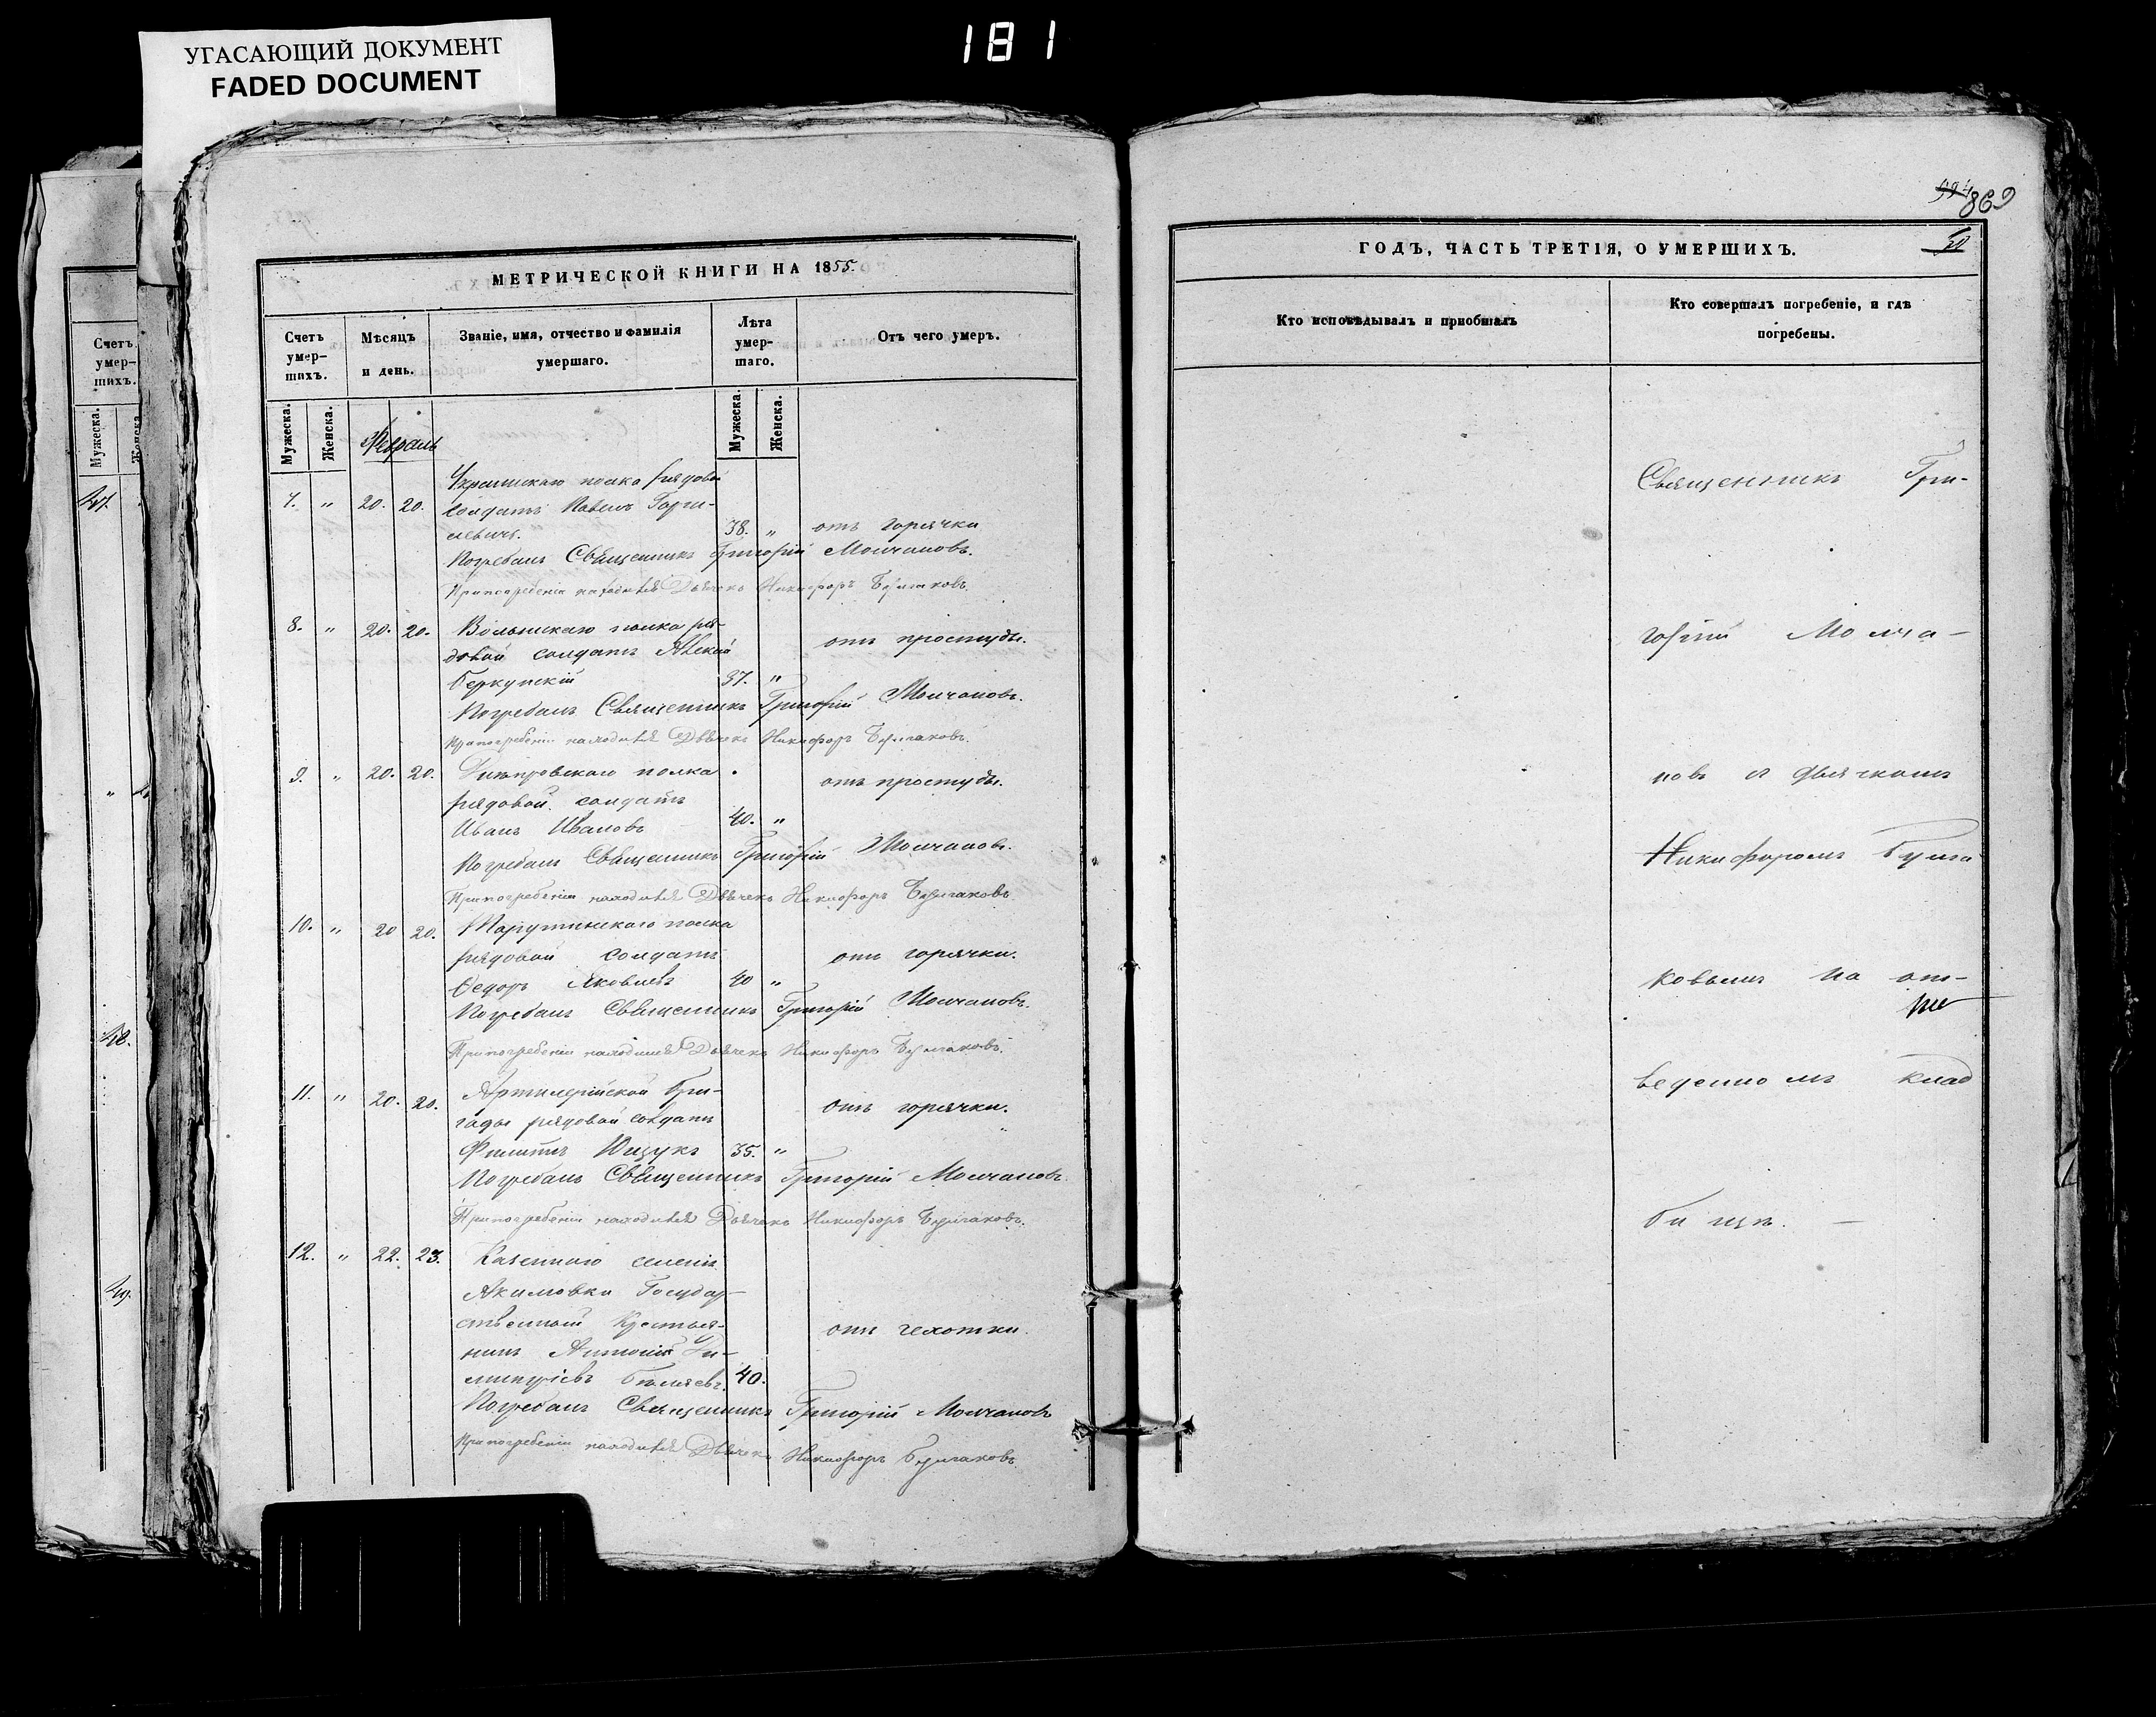 181
УГАСАЮЩИЙ ДОКУМЕНТ
FADED DOCUMENT
Счетъ
умер-
шихъ.
Мужеска.
48.
49.
МЕТРИЧЕСКОЙ КНИГИ НА 1855.
Счетъ умер- шихъ.
Мѣсяцъ и день.
Званіе, имя, отчество и фамилія умершаго.
Лѣта умер- шаго.
Отъ чего умеръ.
Мужеска. Женска.
Февраль
Мужеска. Женска.
Украинскаго полка рядовой
7. " 20. 20. солдатъ Павелъ
38. " отъ горячки
Погребалъ Священникъ Григорій Молчановъ.
При погребеніи находился Дьячекъ Никифоръ Булгаковъ.
8. " 20. 20. Волынскаго полка ря-
довой солдатъ отъ простуды.
37. "
Погребалъ Священникъ Григорій Молчановъ.
При погребеніи находился Дьячекъ Никифоръ Булгаковъ.
9. " 20. 20. Днѣпровскаго полка
рядовой солдатъ отъ простуды.
Иванъ Ивановъ 40. "
Погребалъ Священникъ Григорій Молчановъ.
При погребеніи находился Дьячекъ Никифоръ Булгаковъ.
10. " 20 20. Тарутинскаго полка
рядовой солдатъ отъ горячки.
Ѳедоръ Яковлевъ 40 "
Погребалъ Священникъ Григорій Молчановъ.
При погребеніи находился Дьячекъ Никифоръ Булгаковъ.
11. " 20. 20. Артилерійской бри-
гады рядовой солдатъ отъ горячки.
Филиппъ Ющукъ 35. "
Погребалъ Священникъ Григорій Молчановъ.
При погребеніи находился Дьячекъ Никифоръ Булгаковъ.
12. " 22. 23. Казеннаго селенія
Акимовки Государ-
ственный Крестья-
нинъ Антоній Ди- отъ чехотки.
митріевъ Бѣляевъ. 40.
Погребалъ Священникъ Григорій Молчановъ
При погребеніи находился Дьячекъ Никифоръ Булгаковъ.
869
ГОДЪ, ЧАСТЬ ТРЕТІЯ, О УМЕРШИХЪ.
Кто исповѣдывалъ и пріобщалъ
Кто совершалъ погребеніе, и гдѣ погребены.
Священникъ Гри-
горій Молча-
новъ съ дьячкомъ
Никифоромъ Булга
ковымъ на от-
веденномъ клад
бищѣ.